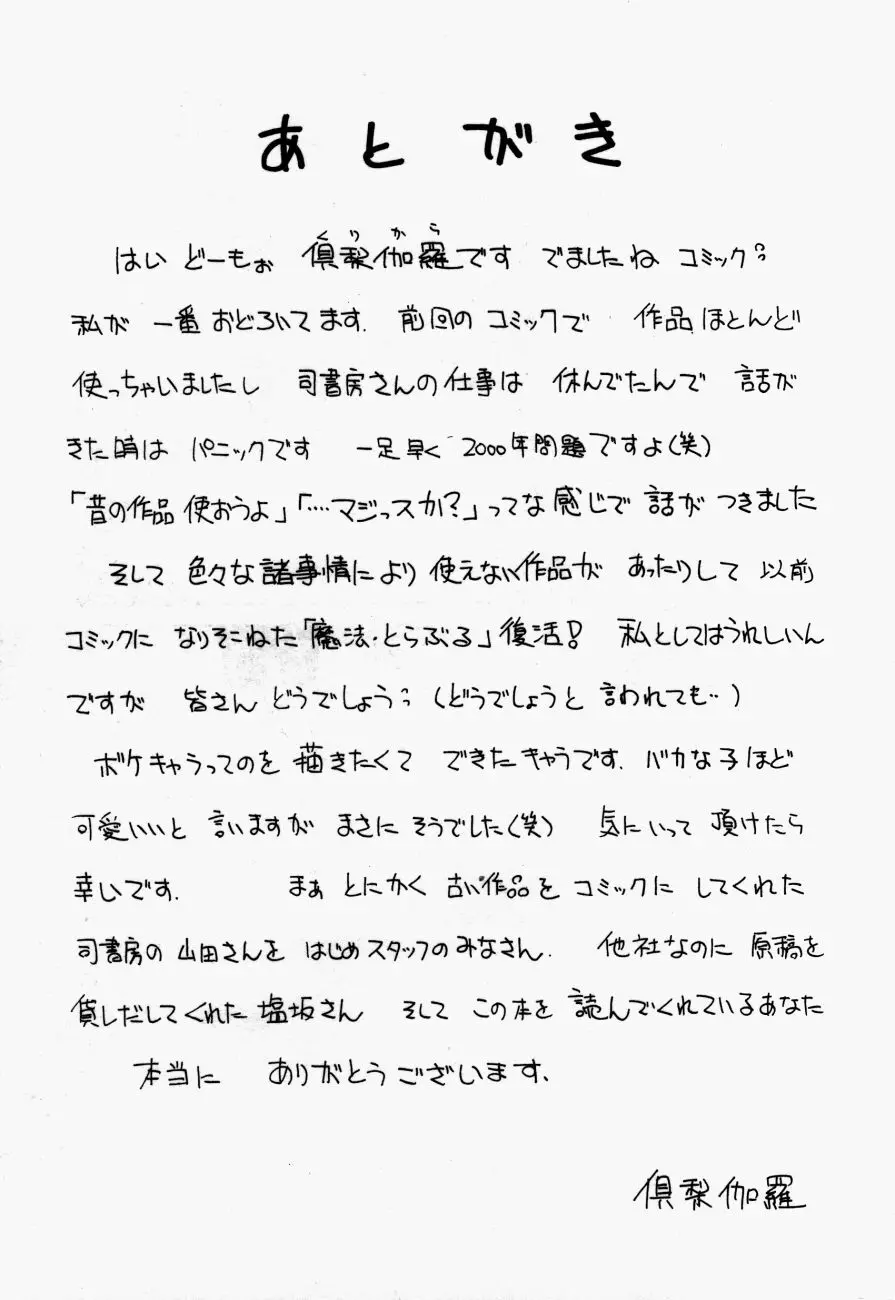 あとがき
はい どーもぉ 倶梨伽羅です でましたね コミック
くりから
私が 一番 おどろいてます. 前回の コミックで 作品 ほとんど
使っちゃいましたし 司書房さんの仕事は 休んでたんで 話が
きた時は パニックです 一足早く 2000年問題ですよ(笑)
「昔の作品 使おうよ」「‥‥マジっスか?」ってな 感じで 話が つきました
そして 色々な 諸事情により 使えない作品が あったりして 以前
コミックに なりそこねた「魔法・とらぶる」復活! 私としてはうれしいん
ですが 皆さん どうでしょう?(どうでしょうと 言われても‥)
ボケキャラってのを 描きたくて できたキャラです. バカな子ほど
可愛いいと 言いますが まさに そうでした(笑) 気にいって 頂けたら
幸いです. まぁ とにかく 古い作品を コミックに してくれた
司書房の 山田さんを はじめスタッフのみなさん. 他社なのに 原稿を
貸しだしてくれた 塩坂さん そして この本を 読んでくれているあなた
本当に ありがとうございます.
倶梨伽羅